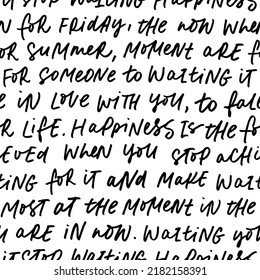 U STOP WAITING HAPPINESS
N FOR FRIDAY, THE NOW WHEN
OR SUMMER, MOMENT ARE F
FOR SOMEONE TO WAITING IT
E IN LOVE WITH YOU, TO FAL
R LIFE. HAPPINESS IS THE FO
EVED WHEN YOU STOP ACHI
TING FOR IT AND MAKE WAIT
MOST AT THE MOMENT IN THE
U ARE IN NOW. WAITING YOU
IT STOP WAITING HAPPINESS
shutterstock.com · 2182158391